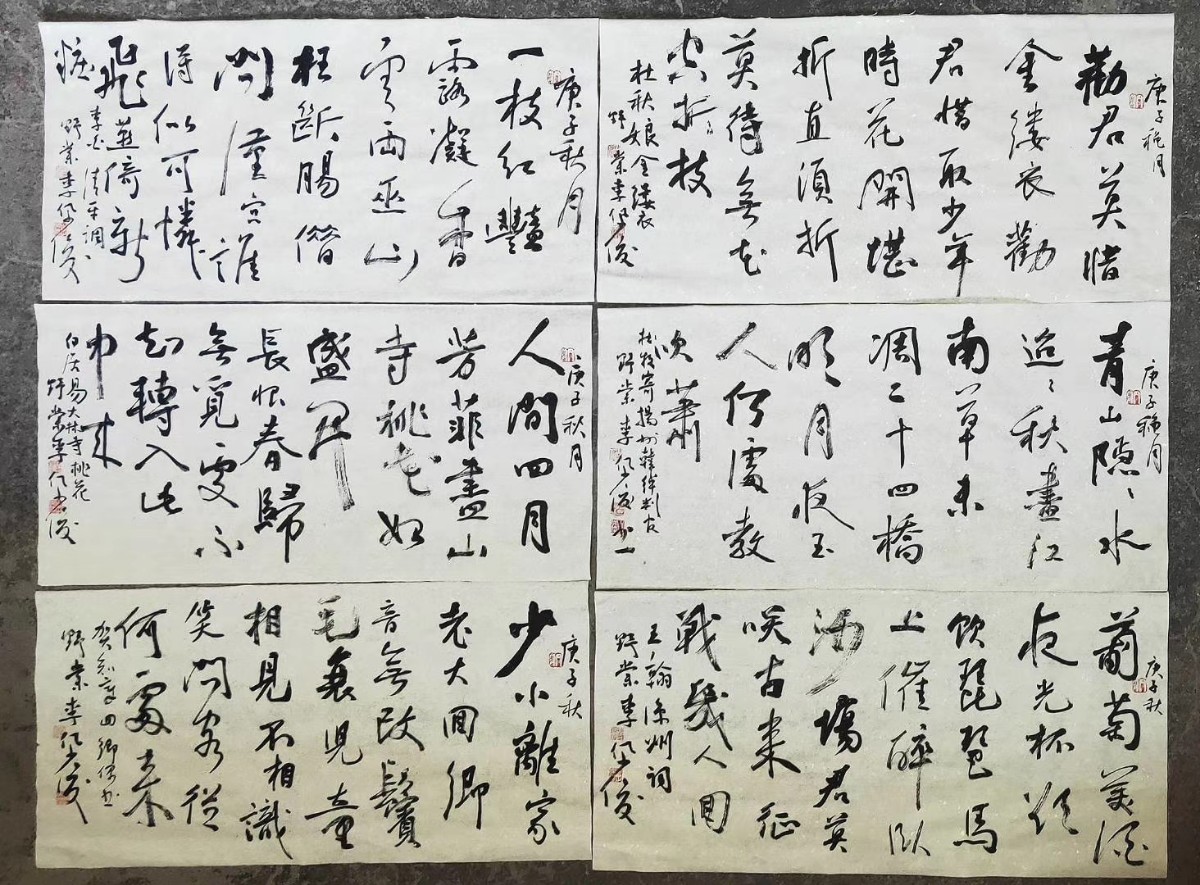 庚子穐月
勸君莫惜
金縷衣勸
君惜取少年
時花開堪
折直須折
莫待無花
空折枝
杜秋娘金縷衣
野棠李俊
庚子秋月
一枝紅豔
露凝香
雲雨巫山
枉斷腸借
問漢宮誰
得似可憐
飛燕倚新
粧
李白清平調
野棠李俊
庚子穐月
青山隱〻水
迢〻秋盡江
南草未
凋二十四橋
明月夜玉
人何處教
吹簫
杜牧寄揚州韓綽判官
野棠李俊
庚子秋月
人間四月
芳菲盡山
寺桃花始
盛開
長恨春歸
無覓處不
知轉入此
中來
白居易大林寺桃花
野棠李俊
庚子秋
葡萄美酒
夜光杯欲
飲琵琶馬
上催醉臥
沙場君莫
笑古來征
戰幾人回
王翰涼州詞
野棠李俊
庚子秋
少小離家
老大回鄉
音無改鬢
毛衰兒童
相見不相識
笑問客從
何處來
賀知章回鄉偶書
野棠李俊